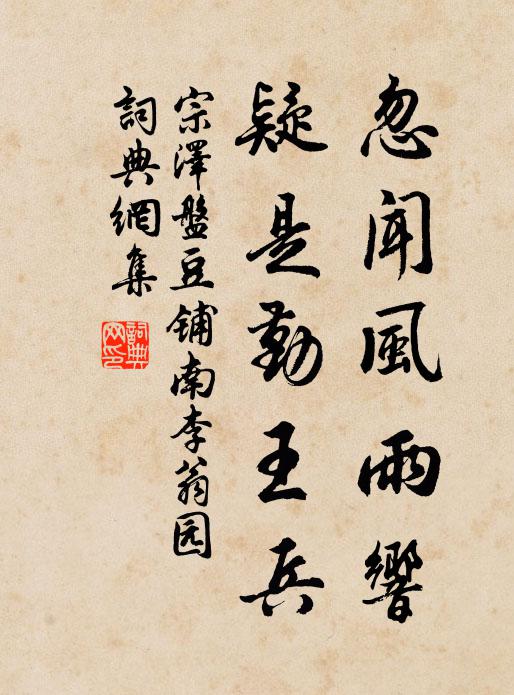 忽聞風雨響
疑是勤王兵
宗澤盤豆鋪南李翁园
詞典網集
詞典網印